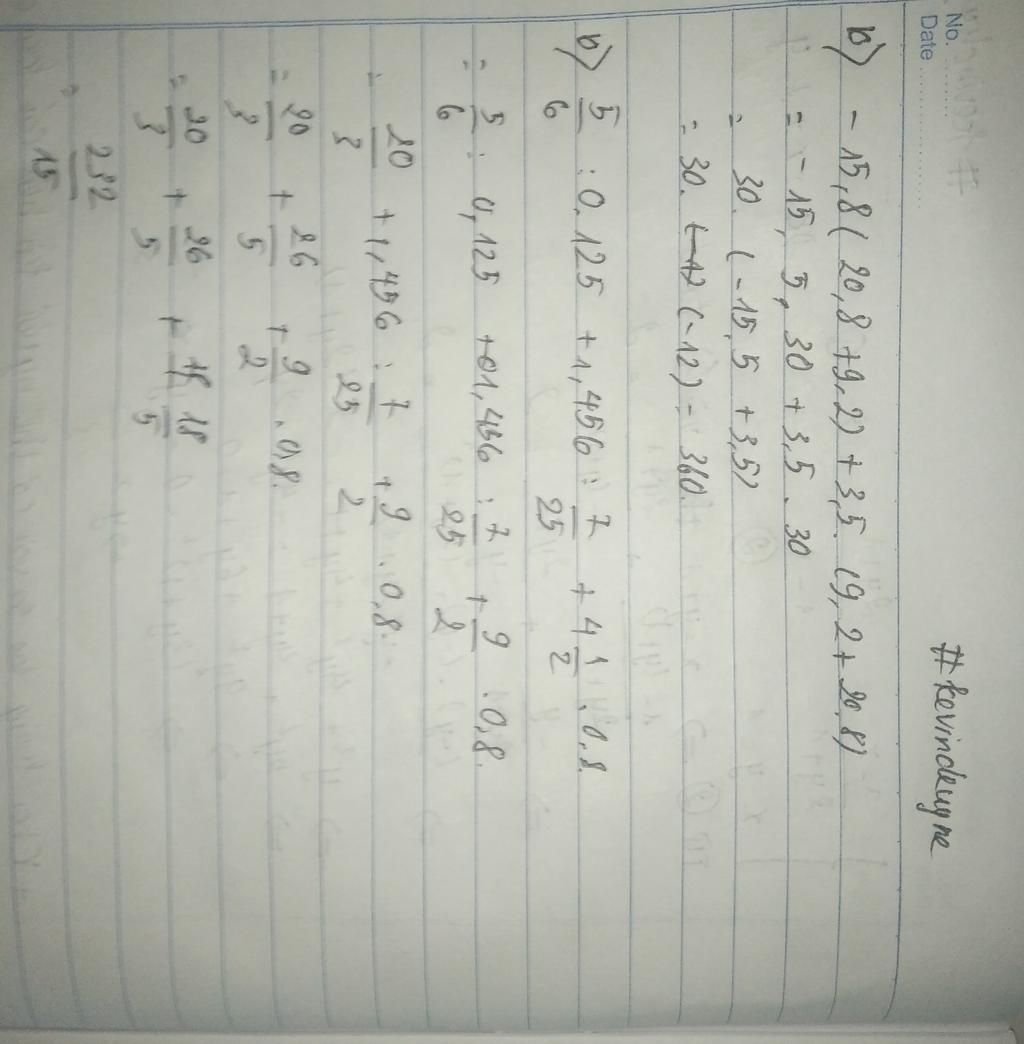 No. ..........
Date ..................
#kevindeugne
b) - 15,8 ( 20,8 + 9,2) + 3,5. (9,2 + 20,8)
= - 15, 5, 30 + 3,5 . 30
= 30. (-15,5 + 3,5)
= 30. (-12) = 360.
b) 5/6 : 0,125 + 1,456 : 7/25 + 4 1/2 . 0,8
= 5/6 : 0,125 + 1,456 : 7/25 + 9/2 . 0,8.
= 20/3 + 1,456 : 7/25 + 9/2 . 0,8.
= 20/3 + 26/5 + 9/2 . 0,8.
= 20/3 + 26/5 + 18/5
= 232/15